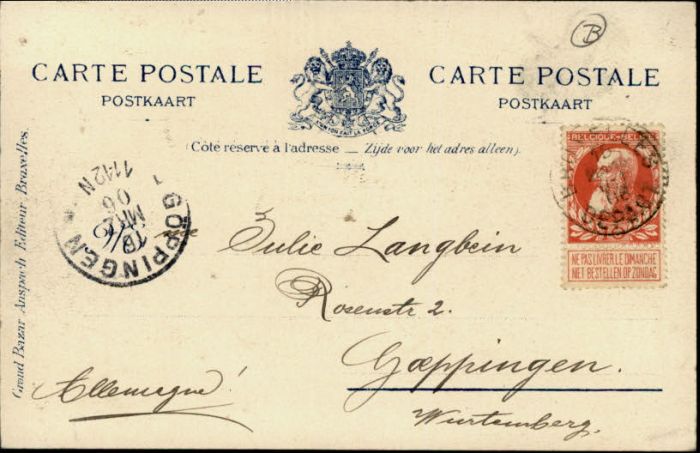 B
CARTE POSTALE
POSTKAART
L'UNION FAIT LA FORCE
CARTE POSTALE
POSTKAART
(Côté réservé à l'adresse — Zijde voor het adres alleen).
Grand Bazar Anspach Editeur Bruxelles
GÖPPINGEN
MRZ
06
11-12 N
BELGIQUE
NE PAS LIVRER LE DIMANCHE
NIET BESTELLEN OP ZONDAG
Julie Langbein
Rosenstr 2.
Gœppingen.
Allemagne!
Wurtemberg.